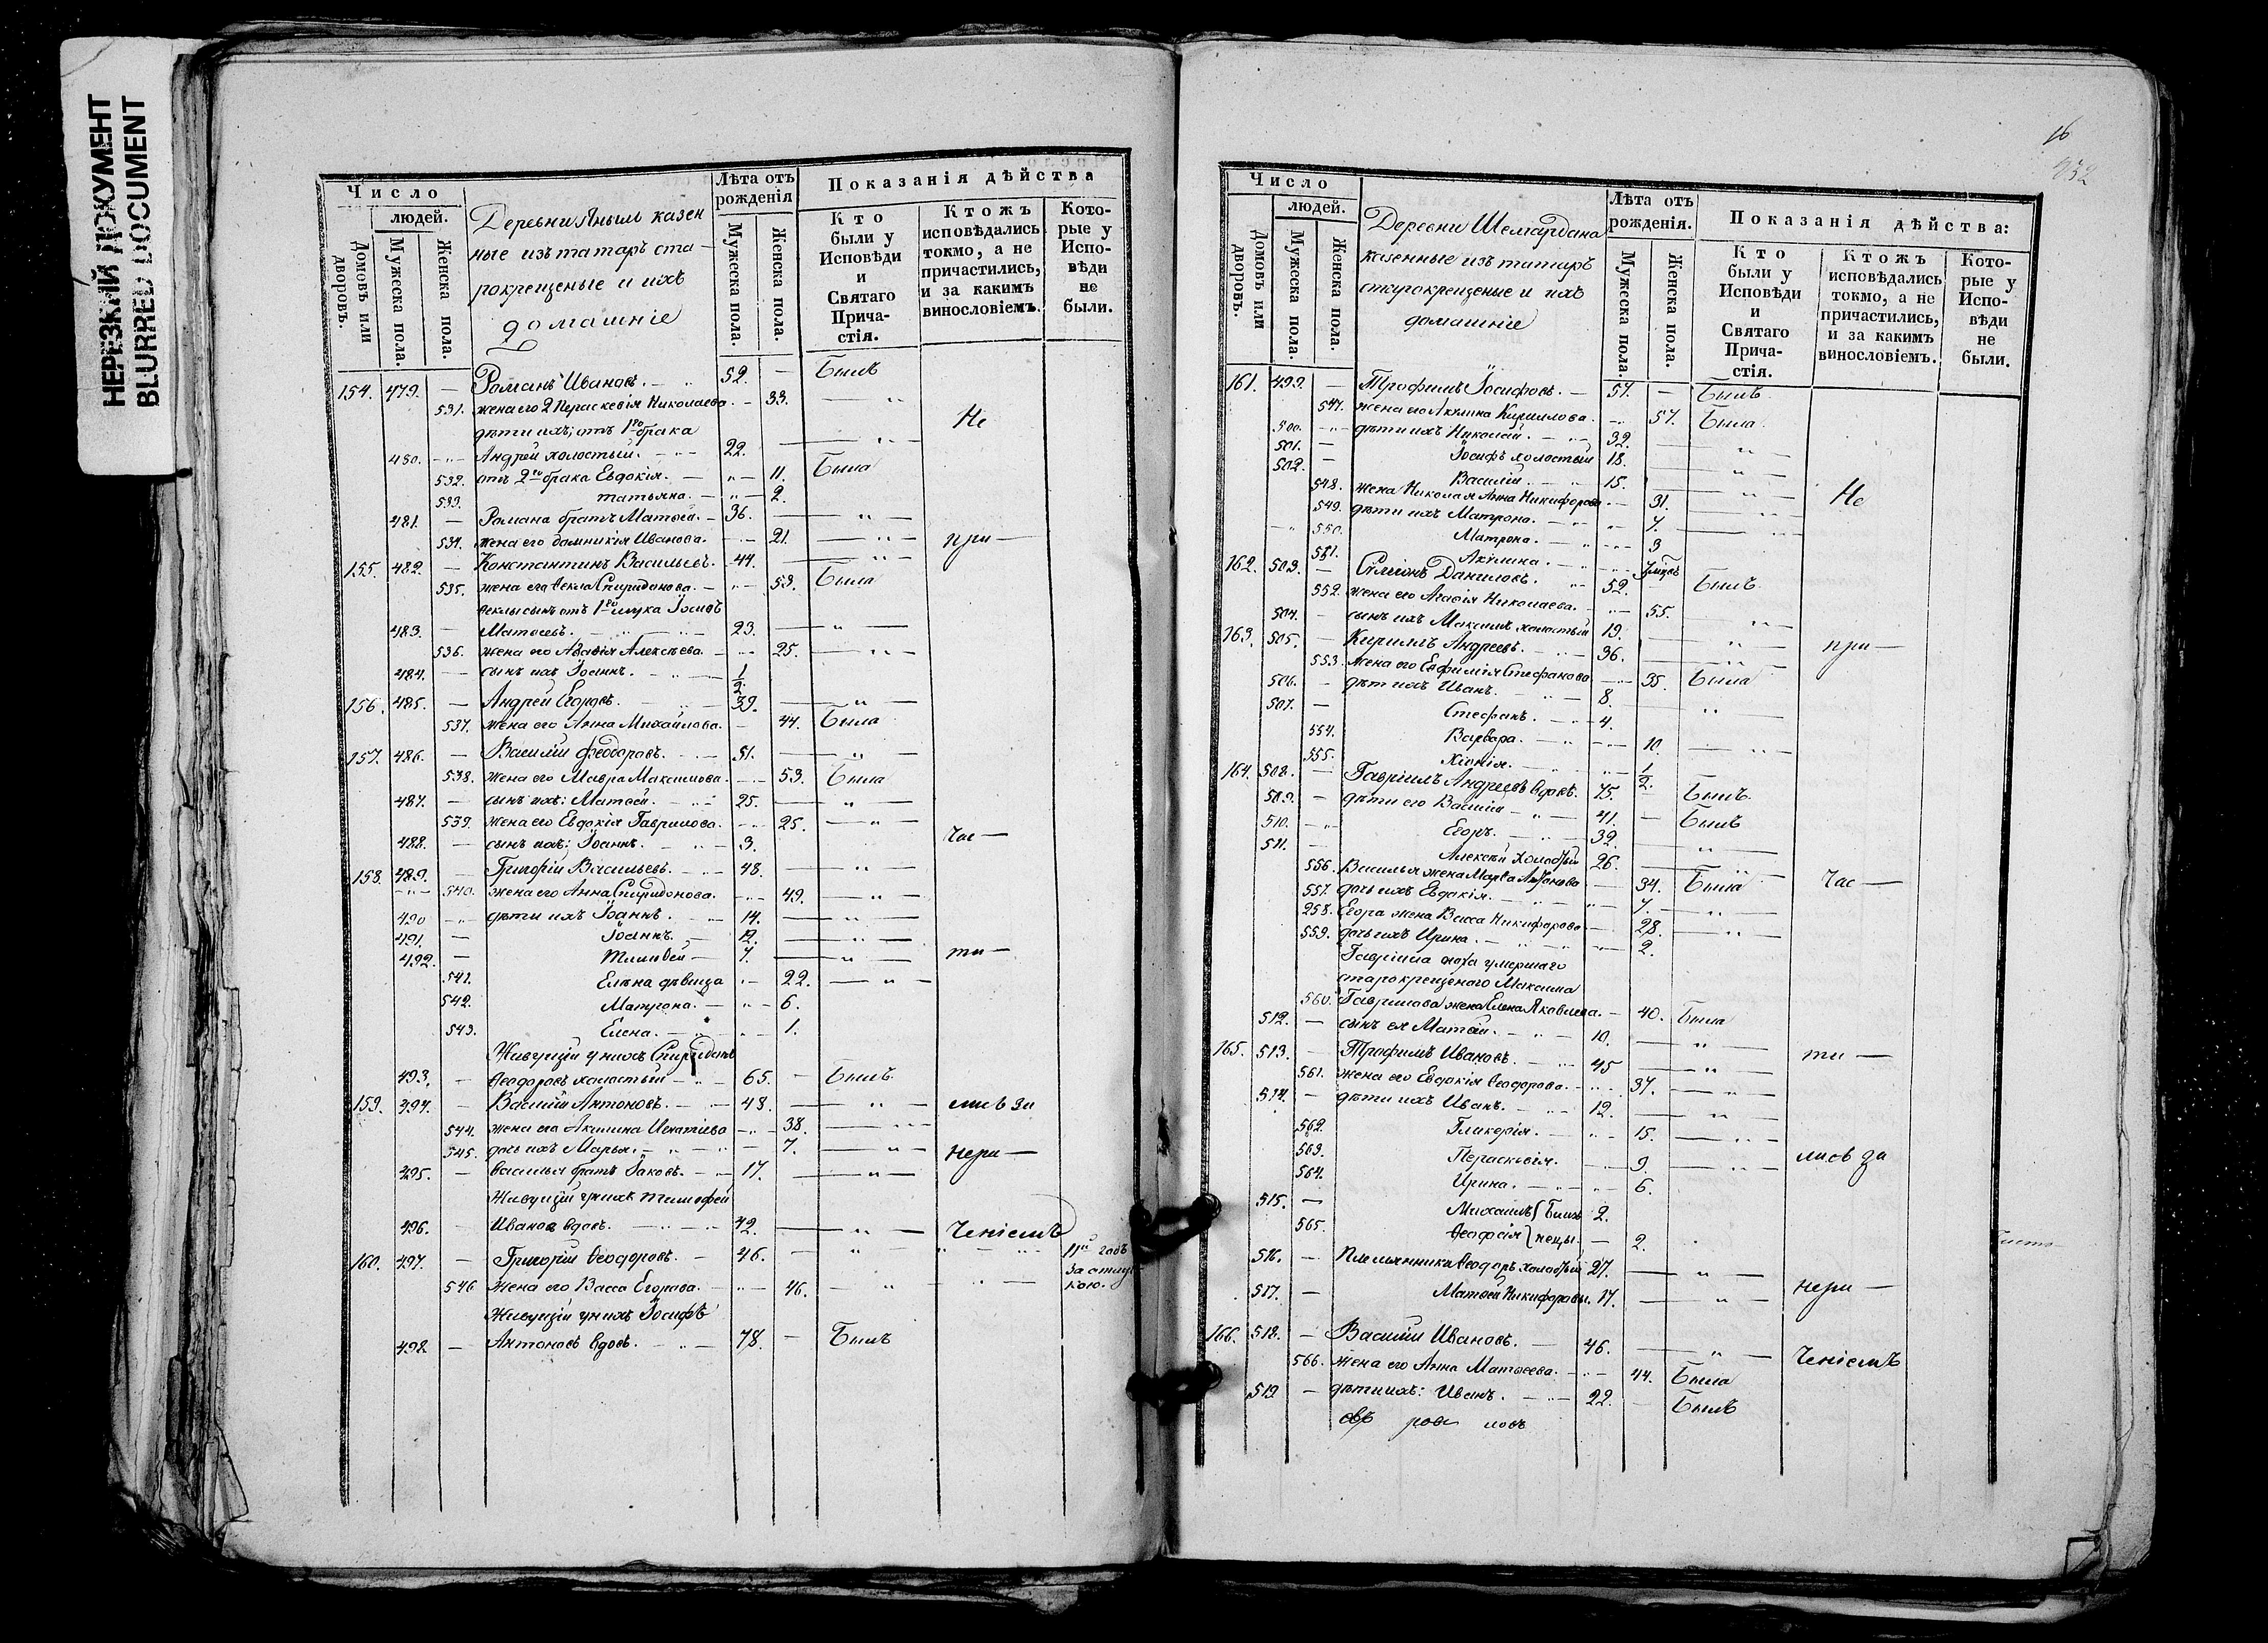 НЕРЕЗКИЙ ДОКУМЕНТ
BLURRED DOCUMENT
Число
людей.
Домовъ или дворовъ.
Мужеска пола.
Женска пола.
Деревни Яныль казен
ные изъ татаръ ста-
рокрещеные и ихъ
домашніе
Лѣта отъ рожденія
Мужеска пола.
Женска пола.
Показанія дѣйства
Кто были у Исповѣди и Святаго Прича-стія.
Ктожъ исповѣдались токмо, а не причастились, и за какимъ винословіемъ.
Кото-рые у Испо-вѣди не были.
154. 479. — Романъ Ивановъ. — 52. — Былъ
531. жена его 2 Параскевія Николаева. — 33. — Не
дѣти ихъ; отъ 1го брака
480. Андрей холостый. — 22. —
532. отъ 2го брака Евдокія. — 11. Была
533. Татьяна. — 2.
481. — Романа братъ Матѳей. — 36. —
534. жена его Домникія Иванова. — 21. — при—
155. 482. — Константинъ Васильевъ. 44. —
535. жена его Ѳекла Спиридонова. — 53. Была
Ѳеклы сынъ отъ 1го мужа Іосифъ
483. — Матѳеевъ. — 23. —
536. жена его Агаѳія Алексѣева. — 25. —
484. — сынъ ихъ Іоаннъ. — 1/2.
156. 485. — Андрей Егоровъ. 39. —
537. жена его Анна Михайлова. — 44. Была
157. 486. — Василій Феодоровъ. — 51. —
538. жена его Мавра Максимова. — 53. Была
487. — сынъ ихъ: Матѳей. — 25. —
539. жена его Евдокія Гаврилова. — 25. —
488. — сынъ ихъ: Іоаннъ. — 3. час—
158. 489. — Григорій Васильевъ. — 48. —
540. жена его Анна Спиридонова. — 49. —
490 — дѣти ихъ Іоаннъ. — 14. —
491. — Іоаннъ. — 12. —
492. — Тимоѳей — 7. — ти—
541. Елена дѣвица — 22. —
542. Матрона. — 6.
543. Елена. — 1.
Живущій у нихъ Спиридонъ
493. — Ѳеодоровъ холостый — 65. — Былъ
159. 494. — Василій Антоновъ. — 48. — лись за
544. жена его Акилина Игнатіева — 38. —
545. дочь ихъ Марья. — 7. — нера—
495. — Василья братъ Іаковъ. — 17. —
Живущій у нихъ Тимофей
496. — Ивановъ вдовъ. — 42. — ченіемъ
160. 497. — Григорій Ѳеодоровъ. — 46. — 11й годъ
за отлуч
546 жена его Васса Егорова. — 46. — кою.
Живущій у нихъ Іосифъ
498 — Антоновъ вдовъ. — 78. — Былъ
16
932
Число
людей.
Домовъ или дворовъ.
Мужеска пола.
Женска пола.
Деревни Шемардана
казенные изъ татаръ
старокрещеные и ихъ
домашніе
Лѣта отъ рожденія.
Мужеска пола.
Женска пола.
Показанія дѣйства:
Кто были у Исповѣди и Святаго Прича-стія.
Ктожъ исповѣдались токмо, а не причастились, и за какимъ винословіемъ.
Кото-рые у Испо-вѣди не были.
161. 499. — Трофимъ Іосифовъ. — 57. — Былъ
547. жена его Акулина Кириллова. — 57. Была
500. дѣти ихъ Николай. — 32.
501. — Іосифъ холостый 18. —
502. — Василій. — 15. —
548. жена Николая Анна Никифорова — 31. — Не
549. дѣти ихъ Матрона. — 7. —
550. Матрона. — 3
551. Акилина. —
162. 503. — Симеонъ Даниловъ. 52. Былъ
552. жена его Агафія Николаева. — 55.
504. — сынъ ихъ Максимъ холостый 19. —
163. 505. — Кириллъ Андреевъ. — 36. — при—
553. жена его Евфимія Стефанова — 35. Была
506. — дѣти ихъ Иванъ. — 8.
507. — Стефанъ. — 4.
554. Варвара. — 10. —
555. Хіонія. — 1/2.
164. 508. — Гавріилъ Андреевъ вдовъ. 75. — Былъ
509. — дѣти его Василій — 41. — Былъ
510. Егоръ. — 39. —
511. — Алексѣй холостый 26. —
556. Василья жена Марѳа Антонова — 34. Была Час—
557. дочь ихъ Евдокія. — 7. —
258. Егора жена Васса Никифорова — 28. —
559. дочь ихъ Ирина. — 2.
Гавріила сноха умершаго
старокрещенаго Максима
560. Гаврилова жена Елена Яковлева. — 40. Была
512. — сынъ ея Матѳей. — 10. —
165. 513. — Трофимъ Ивановъ. — 45 — ти—
561. жена его Евдокія Ѳеодорова. — 37. —
514. — дѣти ихъ Иванъ. — 12. —
562. Гликерія. — 15. —
563. Параскевія. — 9. — лисъ за
564. Ирина. — 6.
515. — Михаилъ } Близ 2.
565. Ѳеодосія } нецы. — 2.
516. — Племянники Ѳеодоръ холостый 27. —
517. — Матѳей Никифоровы. 17. — нера—
166. 518. — Василій Ивановъ. — 46. — ченіемъ
566. жена его Анна Матѳеева. — 44. Была
519 — дѣти ихъ: Иванъ. — 22. — Былъ